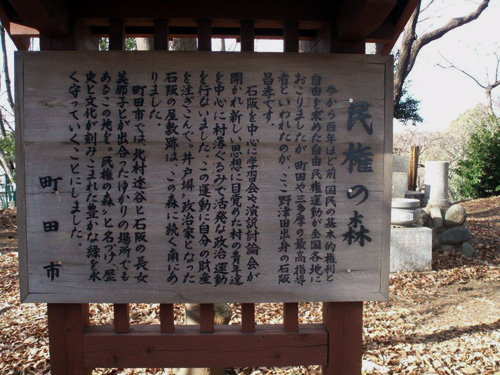 民権の森
今から百年ほど前、国民の基本的権利と
自由を求めた自由民権運動が全国各地に
おこりましたが、町田や三多摩の最高指導
者といわれたのが、ここ野津田出身の石阪
昌孝です。
石阪を中心に学習会や演説討論会が
開かれ新しい思想に目覚めた村の青年達
を中心に村落ぐるみで活発な政治運動
を行ないました。この運動に自分の財産
を注ぎこんで、井戸塀政治家となった
石阪の屋敷跡は、この森に続く南にあ
りました。
町田市では、北村透谷と石阪の長女
美那子とが出合ったゆかりの場所でも
あるこの地を、"民権の森"と名づけ、歴
史と文化が刻みこまれた豊かな緑を永
く守っていくことにしました。
町田市